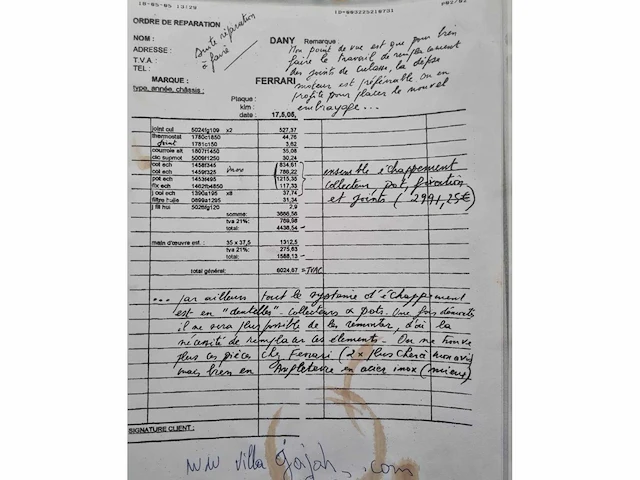 18-05-05 13:20 ID=003225218731 P02/02
ORDRE DE REPARATION
NOM : DANY Remarque :
ADRESSE :
T.V.A :
TEL :
suite réparation
à faire
Mon point de vue est que pour bien
faire le travail de remplacement
des joints de culasse, la dépose
moteur est préférable, on en
profite pour placer de nouvel
embrayage...
MARQUE : FERRARI
type, année, châssis :
Plaque :
klm :
date : 17,5,05,
joint cul 5024fg109 x2 527,37
thermostat 1780c1850 44,76
joint 1781c150 3,62
courroie alt 1807f1450 35,08
clic supmot 5009f1250 30,24
col ech 1458f345 834,61
col ech 1459f325 inox 786,22
pot ech 1453f495 1215,35
fix ech 1462fb4850 117,33
j col ech 1390a195 x8 37,74
filtre huile 0699a1295 31,34
j fil hui 5026fg120 2,9
ensemble échappement
collecteur, pot, fixation
et joints ( 2991,25€)
somme: 3666,56
tva 21%: 769,98
total: 4436,54
main d'œuvre est : 35 x 37,5 1312,5
tva 21%: 275,63
total: 1588,13
total général: 6024,67 = TVAC
... par ailleurs tout le système d'échappement
est en "dentelles" - collecteurs & pots. Une fois démontés
il ne sera plus possible de les remonter, d'où la
nécessité de remplacer ces éléments. On ne trouve
plus ces pièces chez Ferrari (2 x plus chères
mais bien en Angleterre en acier inox (mieux)
SIGNATURE CLIENT :
www villa Gajah . com